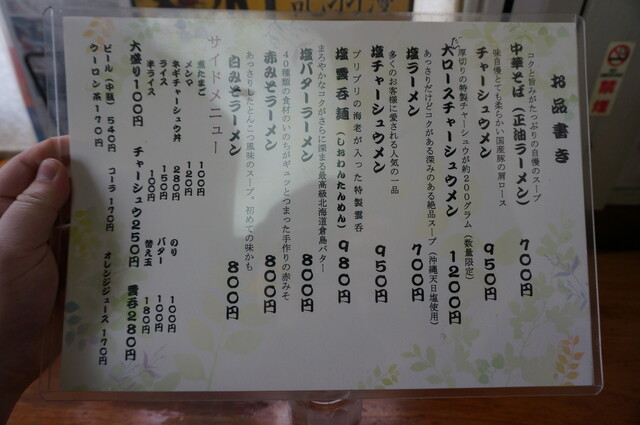 お品書き
中華そば(正油ラーメン) 700円
コクと旨みがたっぷりの自慢のスープ
チャーシュウメン 950円
味自慢とても柔らかい国産豚の肩ロース
大ロースチャーシュウメン 1200円
厚切りの特製チャーシュウが約200グラム(数量限定)
塩ラーメン 700円
あっさりだけどコクがある深みのある絶品スープ(沖縄天日塩使用)
塩チャーシュウメン 950円
多くのお客様に愛される人気の一品
塩雲呑麺(しおわんたんめん) 980円
プリプリの海老が入った特製雲呑
塩バターラーメン 800円
まろやかなコクがさらに深まる最高級北海道倉島バター
赤みそラーメン 800円
40種類の食材のいのちがギュッとつまった手作りの赤みそ
白みそラーメン 800円
あっさりしたとんこつ風味のスープ、初めての味かも
サイドメニュー
煮たまご 100円 のり 100円
メンマ 120円 バター 100円
ネギチャーシュウ丼 280円 替え玉 180円
ライス 150円
半ライス 100円
大盛り100円 チャーシュウ250円 雲呑280円
ビール(中瓶) 540円 コーラ 170円 オレンジジュース 170円
ウーロン茶 170円
禁煙